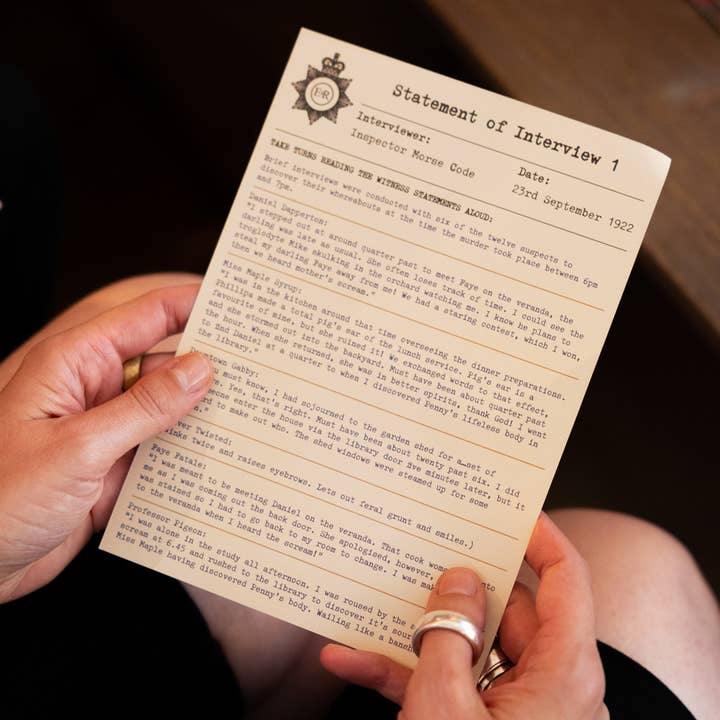 E R
Statement of Interview 1
Interviewer:
Inspector Morse Code
Date:
23rd September 1922
TAKE TURNS READING THE WITNESS STATEMENTS ALOUD:
Brief interviews were conducted with six of the twelve suspects to
discover their whereabouts at the time the murder took place between 6pm
and 7pm.
Daniel Dapperton:
"I stepped out at around quarter past to meet Faye on the veranda, the
darling was late as usual. She often loses track of time. I could see the
troglodyte Mike skulking in the orchard watching me. I know he plans to
steal my darling Faye away from me! We had a staring contest, which I won,
then we heard mother's scream."
Miss Maple Syrup:
"I was in the kitchen around that time overseeing the dinner preparations.
Phillipa made a total pig's ear of the lunch service. Pig's ear is a
favourite of mine, but she ruined it! We exchanged words to that effect,
and she stormed out into the backyard. Must have been about quarter past
the hour. When she returned, she was in better spirits, thank God! I went
to find Daniel at a quarter to when I discovered Penny's lifeless body in
the library."
Gabby:
must know, I had sojourned to the garden shed for a…set of
Yes, that's right. Must have been about twenty past six. I did
enter the house via the library door five minutes later, but it
to make out who. The shed windows were steamed up for some
Twisted:
twice and raises eyebrows. Lets out feral grunt and smiles.)
Faye Fatale:
"I was meant to be meeting Daniel on the veranda. That cook
me as I was coming out the back door. She apologised, however,
was stained so I had to go back to my room to change. I was
to the veranda when I heard the scream!"
Professor Pigeon:
"I was alone in the study all afternoon. I was roused by the
scream at 6.45 and rushed to the library to discover it's
Miss Maple having discovered Penny's body. Wailing like a